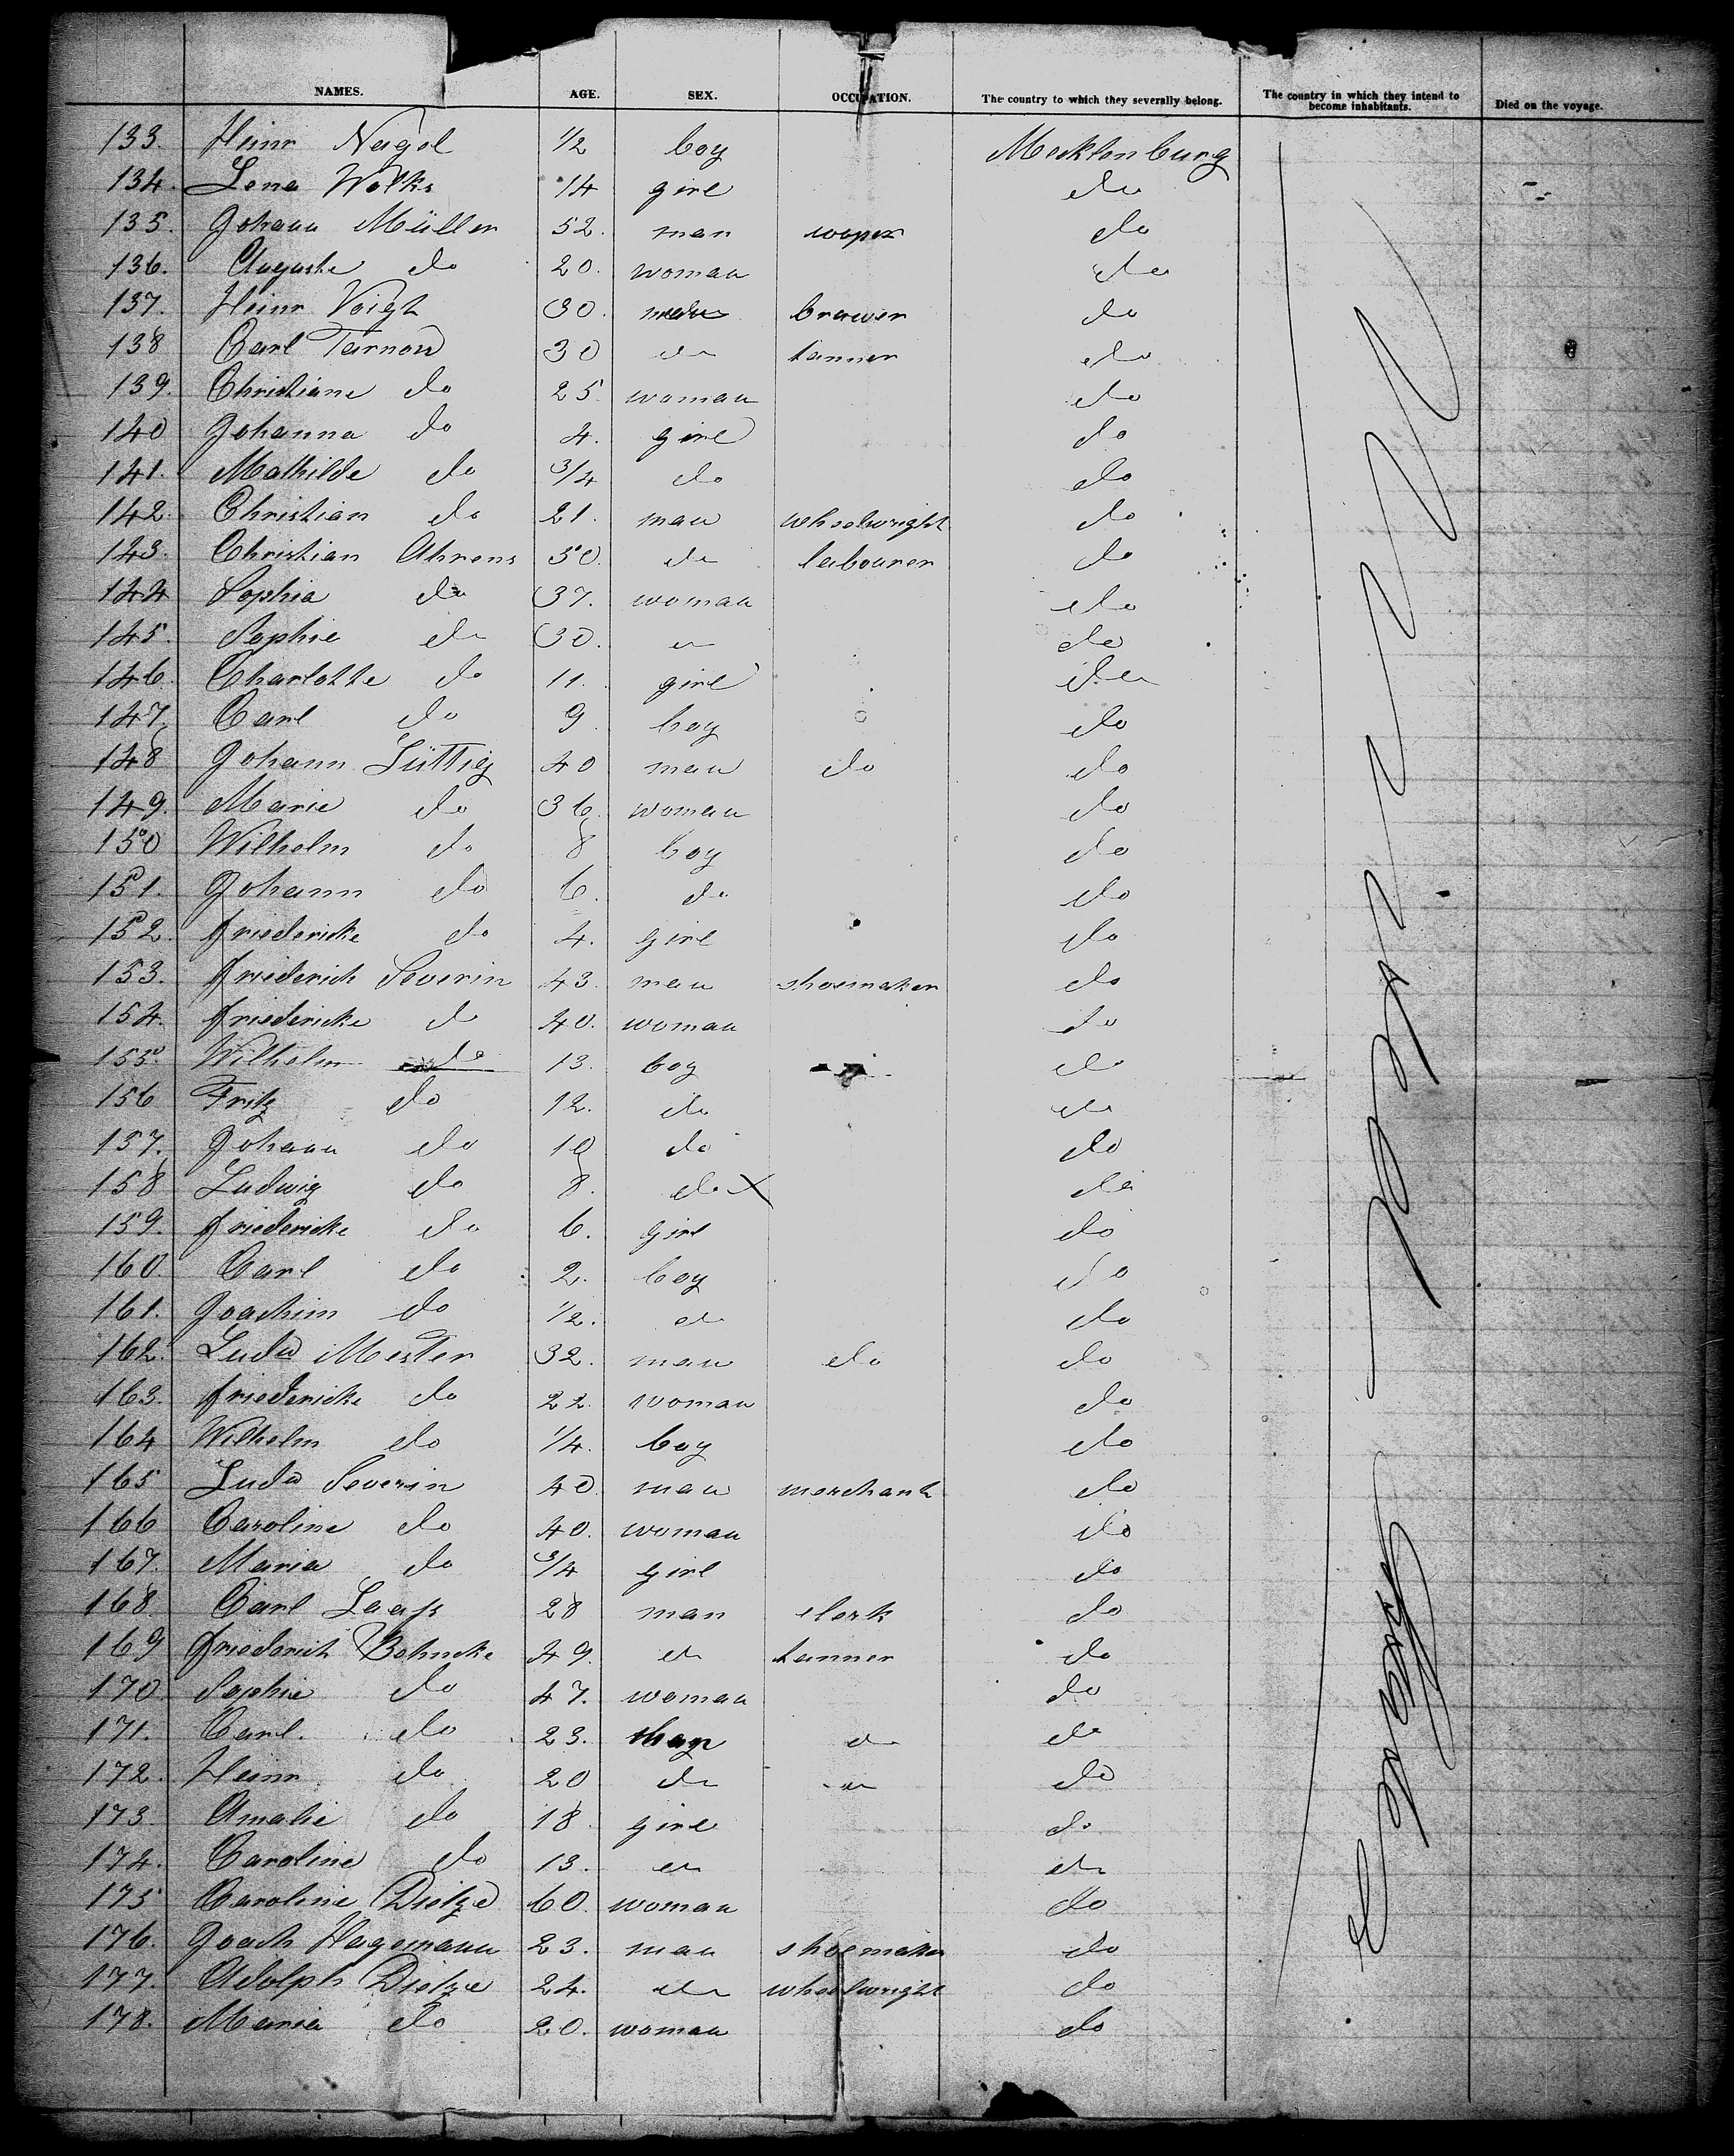 NAMES. AGE. SEX. OCCUPATION. The country to which they severally belong. The country in which they intend to become inhabitants. Died on the voyage.
133. Heinr Nagel 1/2 boy Mecklenburg
134. Lena Wolks 14 girl do
135. Johann Müller 52. man cooper do
136. Auguste do 20. woman do
137. Heinr Voigt 30. man brewer do
138 Carl Tarnow 30 do tanner do
139. Christiane do 25. woman do
140 Johanna do 4. girl do
141. Mathilde do 3/4 do do
142. Christian do 21. man wheelwright do
143. Christian Ahrens 50. do labourer do
144 Sophia do 37. woman do
145. Sophie do 30. do do
146. Charlotte do 11. girl do
147. Carl do 9 boy do
148 Johann Lüttig 40 man do do
149. Marie do 36 woman do
150 Wilhelm do 8 boy do
151. Johann do 6. do do
152. Friedericke do 4. girl do
153. Friederich Severin 43. man shoemaker do
154. Friedericke do 40. woman do
155. Wilhelm do 13. boy do
156 Fritz do 12. do do
157. Johann do 10 do do
158 Ludwig do 8. do X do
159. Friedericke do 6. girl do
160. Carl do 2. boy do
161. Joachim do 1/2. do do
162. Ludw Mester 32. man do do
163. Friedericke do 22. woman do
164 Wilhelm do 1/4. boy do
165 Ludw Severin 40 man merchant do
166 Caroline do 40. woman do
167. Maria do 3/4 girl do
168. Carl Laaß 28 man clerk do
169 Friederich Bohncke 49. do tanner do
170. Sophie do 47. woman do
171. Carl. do 23. man do do
172. Heinr do 20 do do do
173. Amalie do 18. girl do
174. Caroline do 13. do do
175 Caroline Dietze 60. woman do
176. Joach Hagemann 23. man shoemaker do
177. Adolph Dietze 24. do wheelwright do
178. Maria do 20. woman do